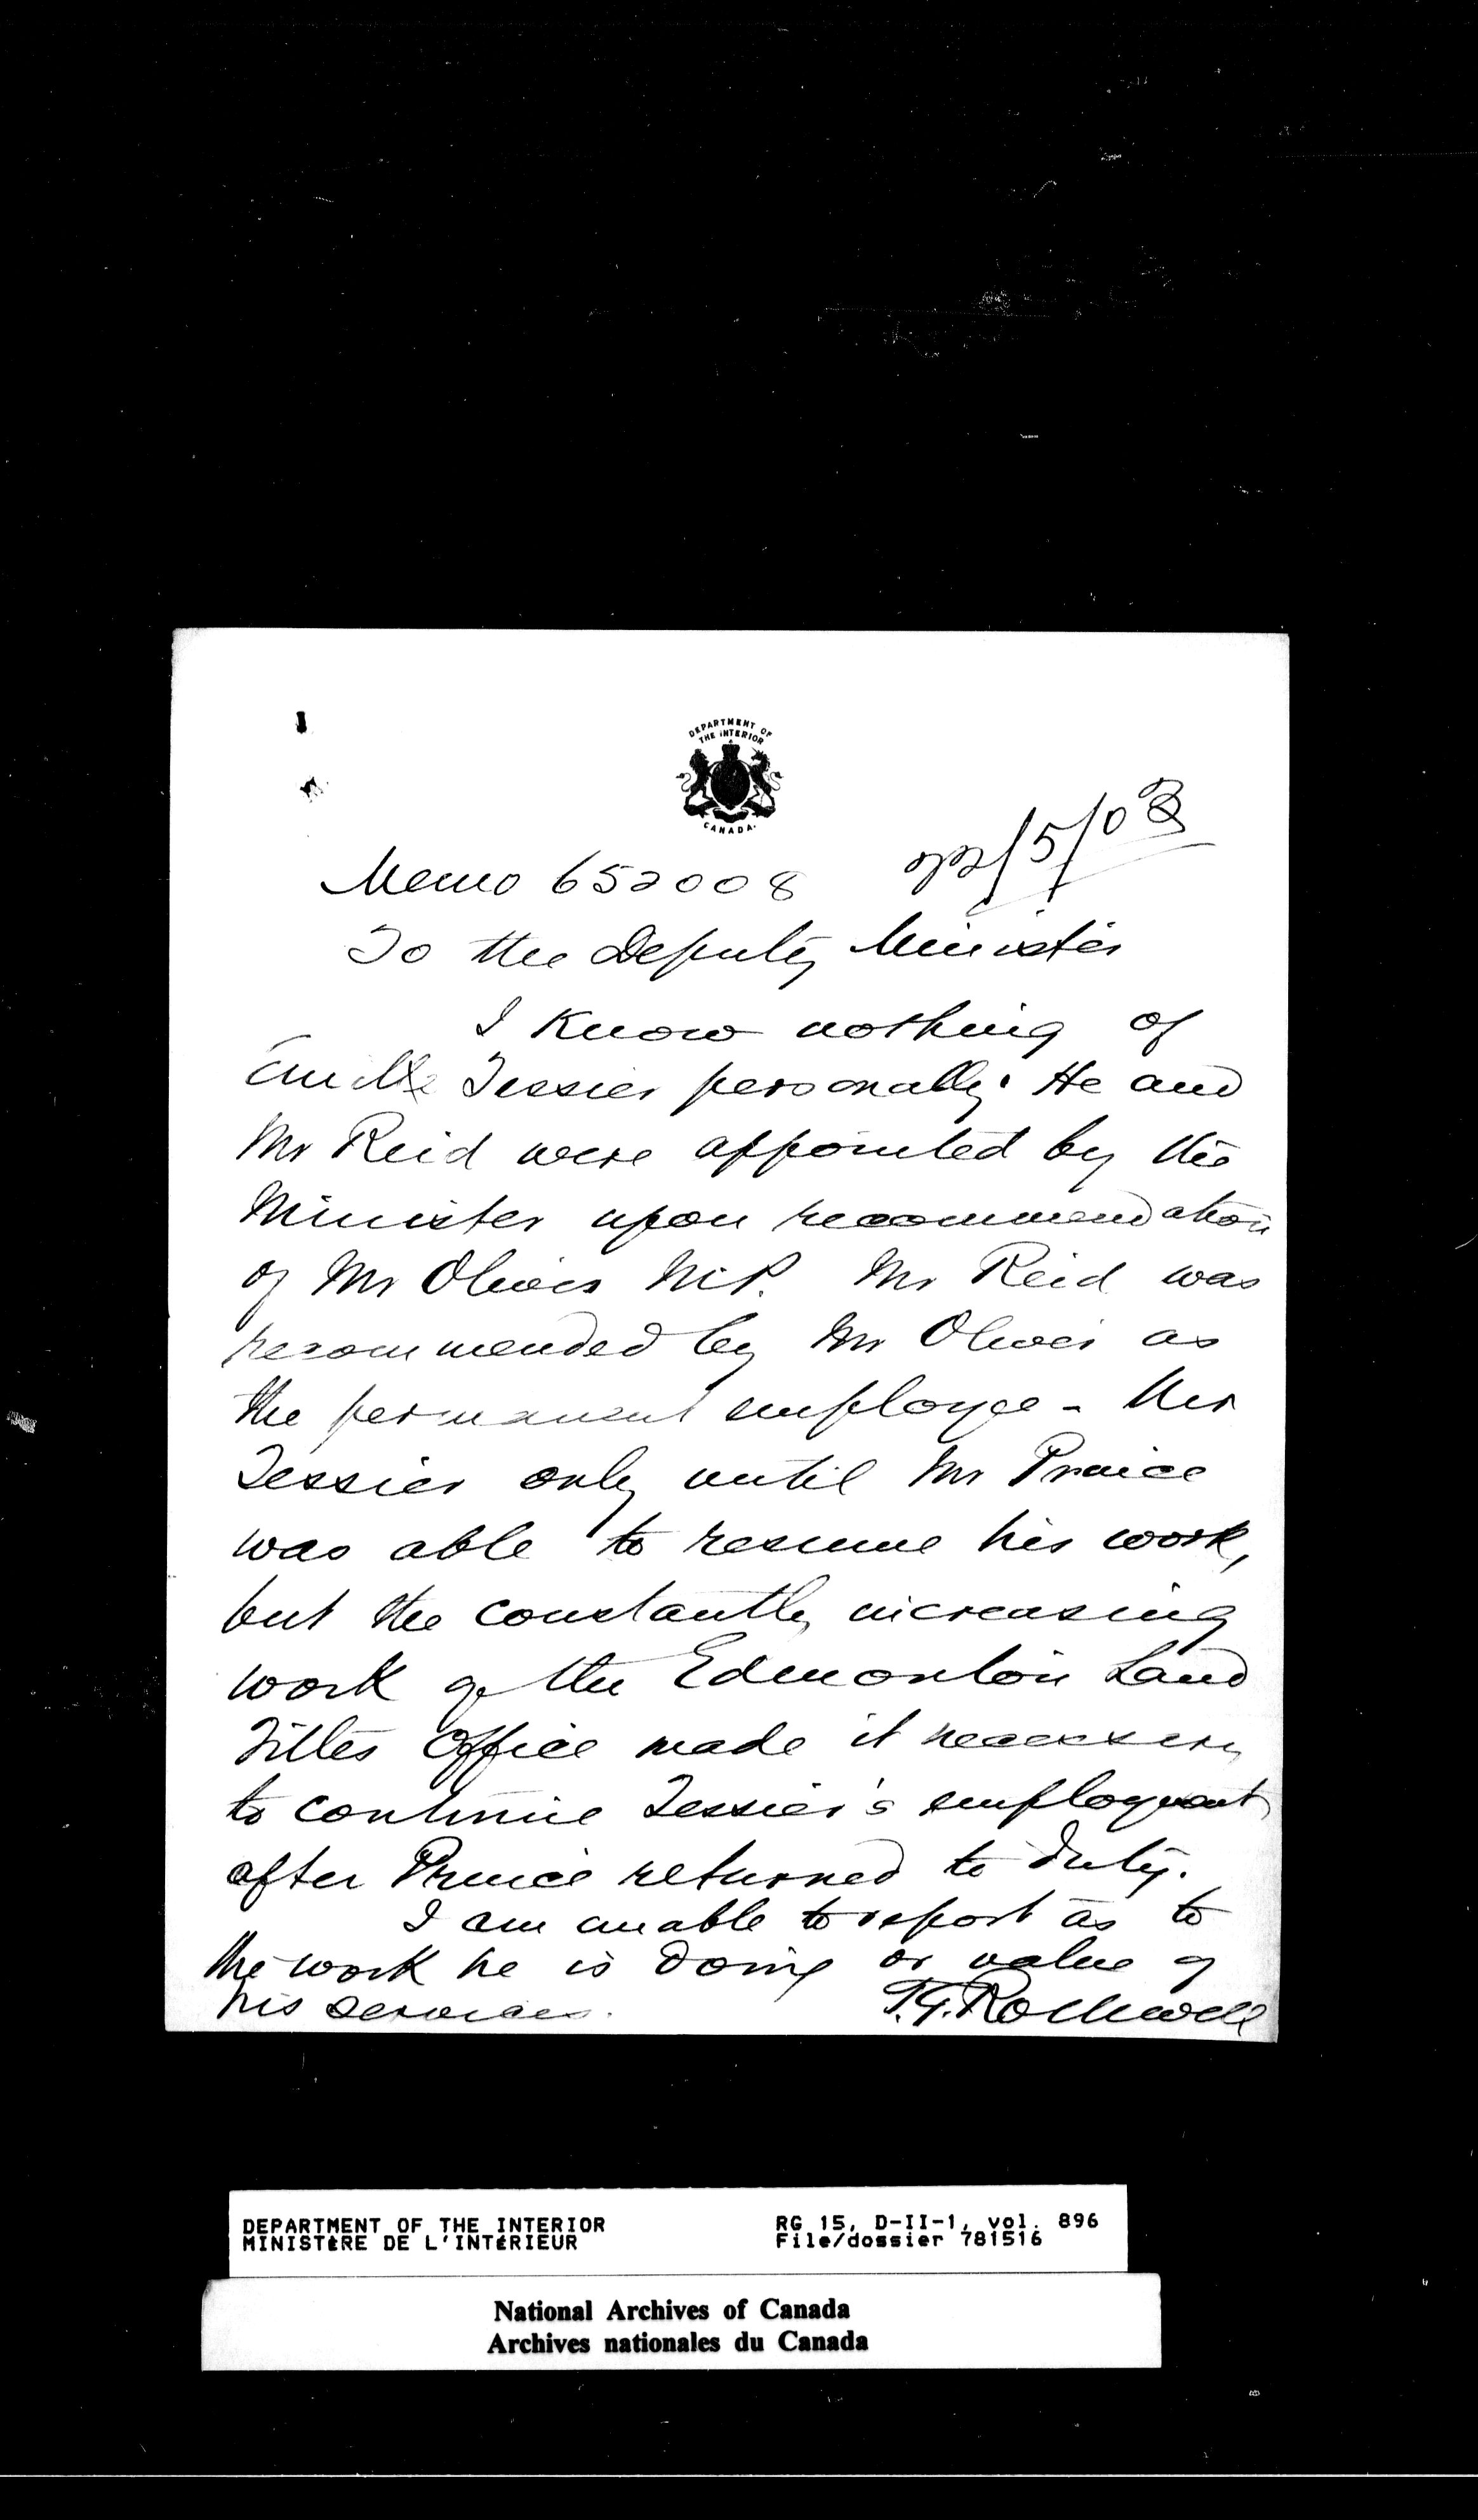 DEPARTMENT OF
THE INTERIOR
CANADA.
22/5/03
Memo 652008
To the Deputy Minister
I know nothing of
Emile Tessier personally. He and
Mr Reid were appointed by the
Minister upon recommendation
of Mr Oliver M.P. Mr Reid was
recommended by Mr Oliver as
the permanent employee - Mr
Tessier only until Mr Prince
was able to resume his work,
but the constantly increasing
work of the Edmonton Land
Titles Office made it necessary
to continue Tessier's employment
after Prince returned to duty.
I am unable to report as to
the work he is doing or value of
his services.
T.G. Rothwell
DEPARTMENT OF THE INTERIOR
MINISTÈRE DE L'INTÉRIEUR
RG 15, D-II-1, vol. 896
File/dossier 781516
National Archives of Canada
Archives nationales du Canada